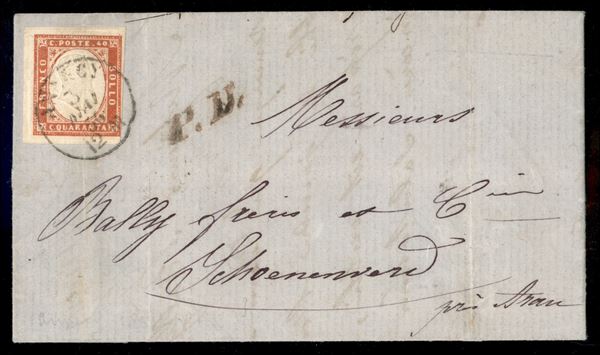 C. POSTE. 40
FRANCO
BOLLO
C. QUARANTA
12
P. D.
Messieurs
Bally frères et Cie
Schoenenwerd
près Arau